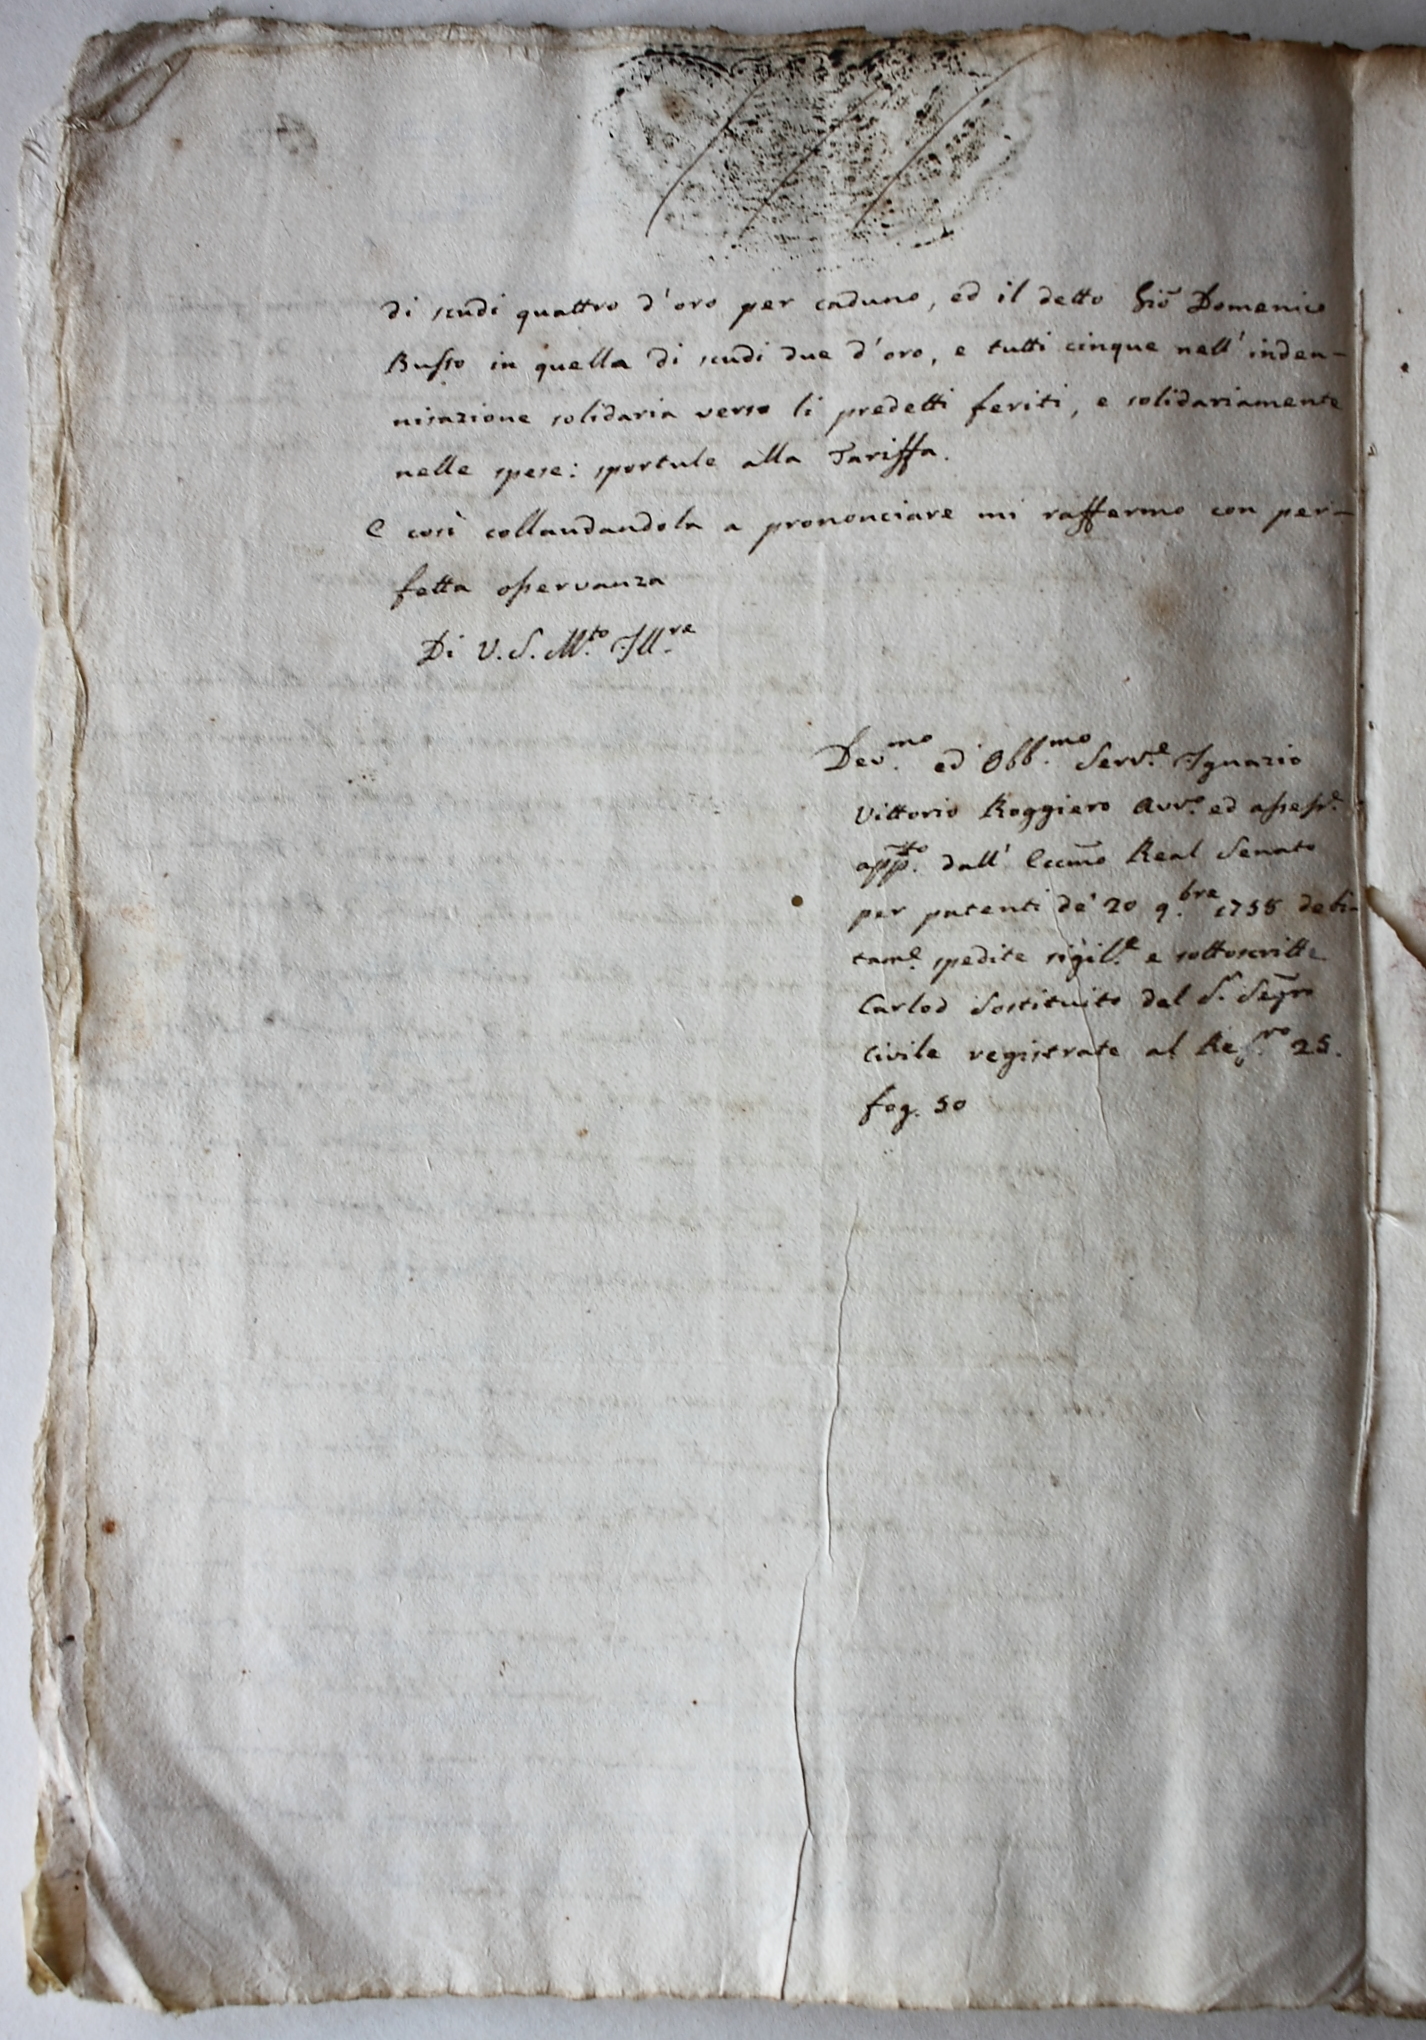 di scudi quattro d'oro per caduno, ed il detto Giō Domenico
Busso in quella di scudi due d'oro, e tutti cinque nell'inden-
nisazione solidaria verso li predetti feriti, e solidariamente
nelle spese: sportule alla Tariffa.
E così collaudandola a prononciare mi raffermo con per-
fetta osservanza
Di V. S. M.to Ill.re
Dev.mo ed Obb.mo Serv.e Ignazio
Vittorio Roggiero Avv.o ed assess.e
app.to dall' Eccm̄o Real Senato
per patenti de' 20 9.bre 1758 debi-
tam.e spedite sigil.e e sottoscritte
Carlod Sostituito dal S. Seg̃ro
Civile registrate al Reg.ro 25.
fog. 50